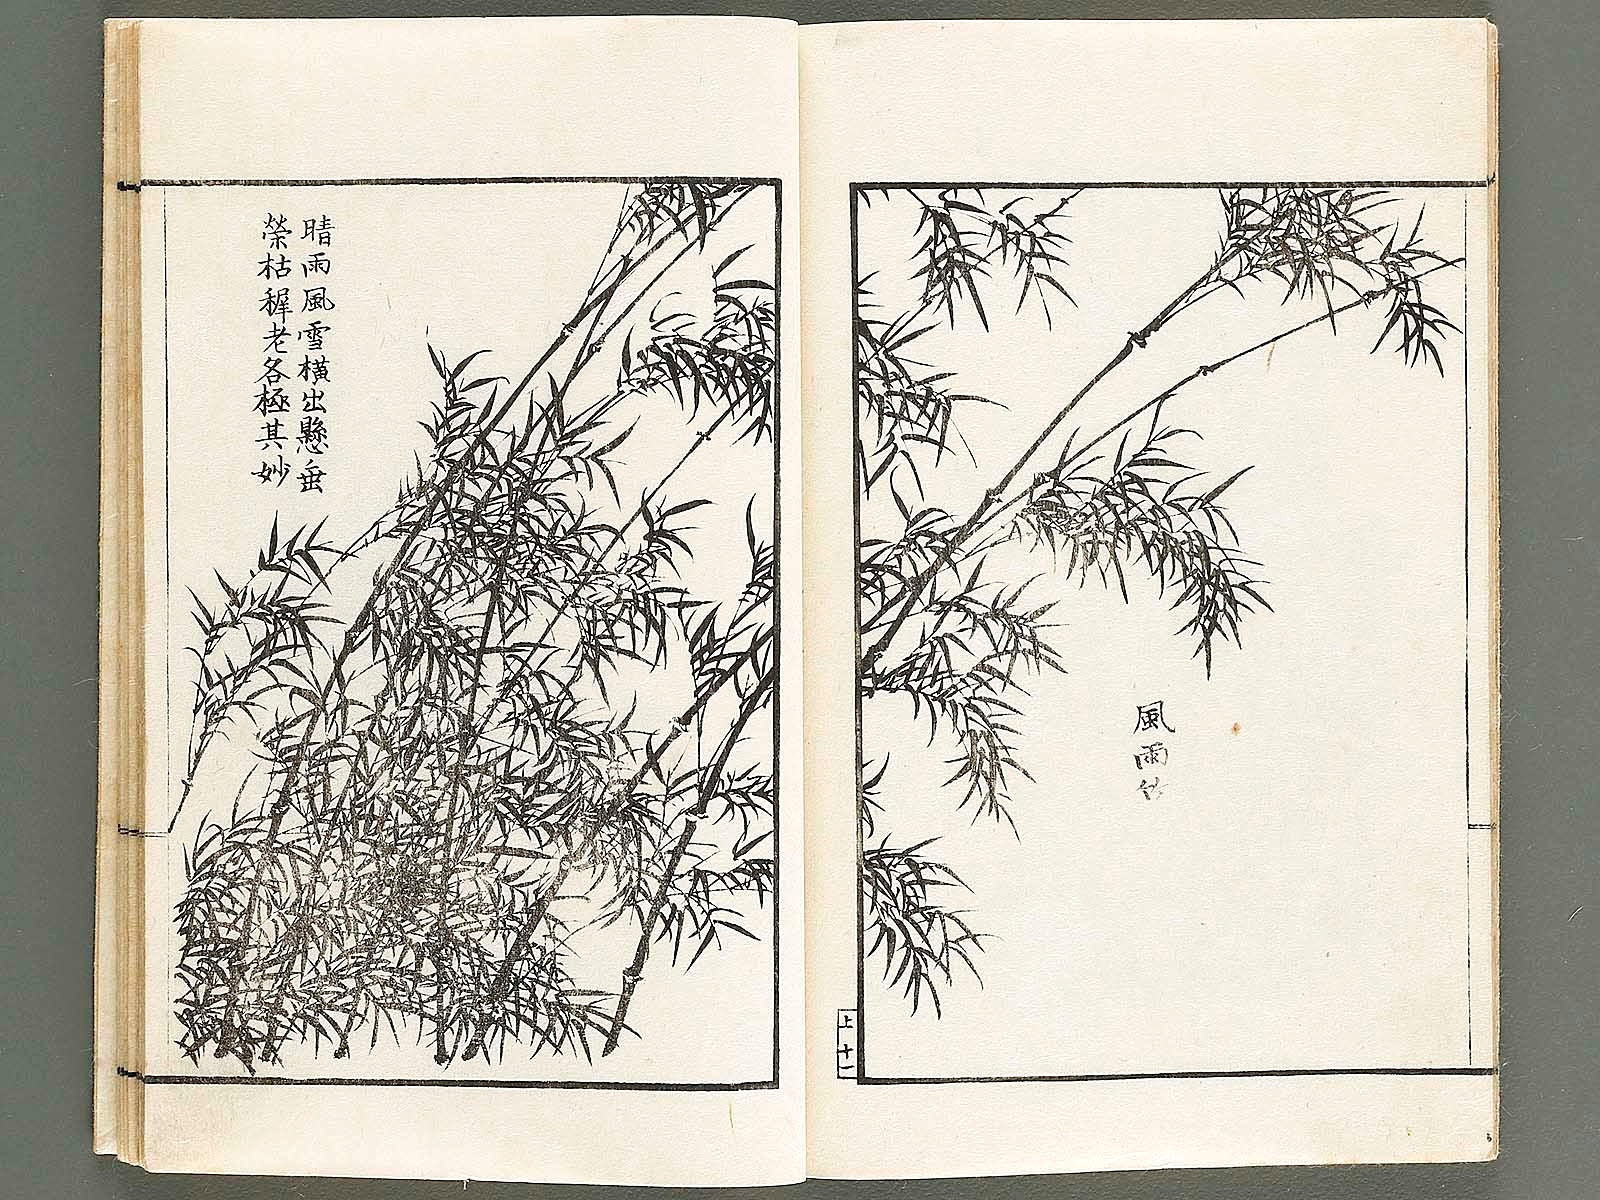 風雨竹
上 十一
晴雨風雪橫出懸垂
榮枯穉老各極其妙